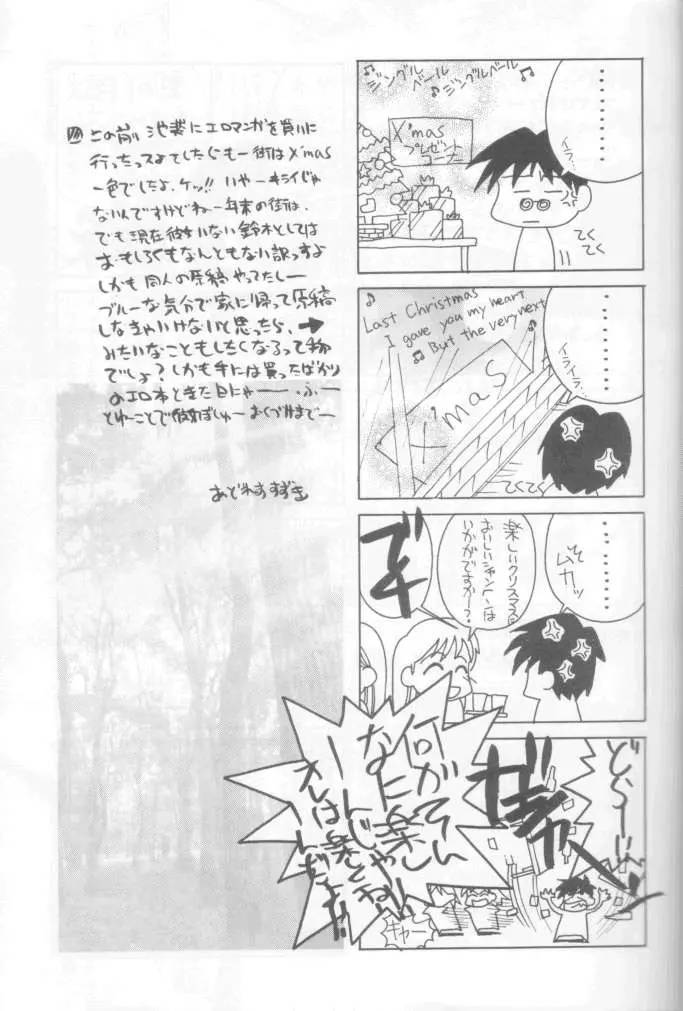 ・・・・・・
イラ・・
♪ジングルベール ♪ジングルベール♪
X'mas
プレゼント
コーナー
てくてく
・・・・・・
イライラ・・
♪Last Christmas
I gave you my heart
♪But the very next
X'mas
てくてく
・・・・・・
ムカッ
楽しいクリスマスに
おいしいシャンペンは
いかがですかー?
どーーん
何がそんなに楽しーんじゃい!!
オレは楽しくねーんだよ!!
キャー
この前 池袋にエロマンガを買いに
行ったっスよでしたらもー街はX'mas
一色でしたよ、ケッ!! いやーキライじゃ
ないんですけどねー年末の街は、
でも現在彼女いない鈴木としては
おもしろくもなんともない訳っすよ
しかも同人の原稿やってたしー
ブルーな気分で家に帰って原稿
しなきゃいけないと思ったら、→
みたいなこともしたくなるって物
でしょ?しかも手には買ったばかり
のエロ本ときた日にゃー